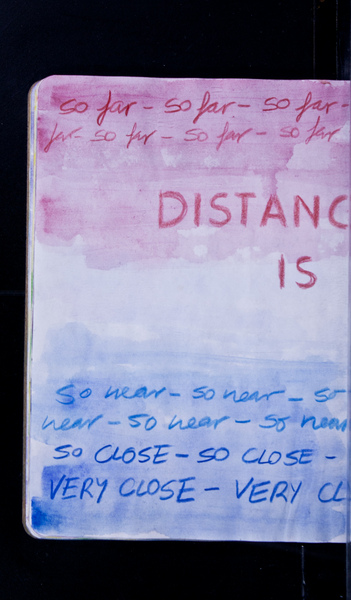 so far - so far - so far -
far - so far - so far - so far
DISTANC
IS
so near - so near - so
near - so near - so near
so CLOSE - so CLOSE -
VERY CLOSE - VERY CL